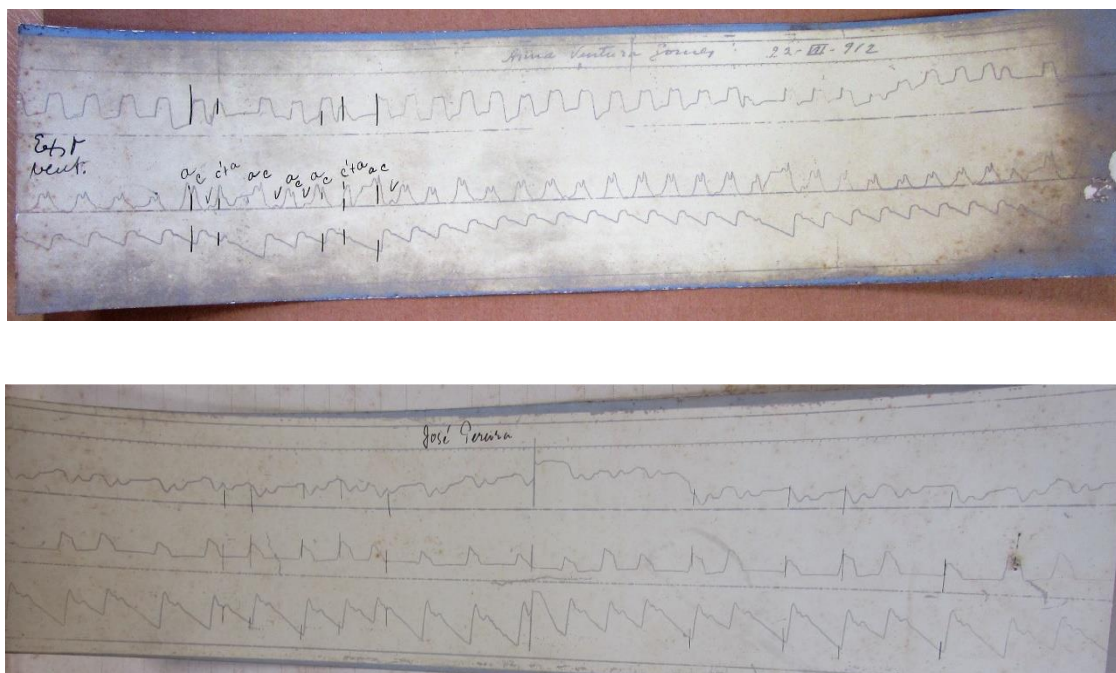 Anna Ventura Gomes 22-III-912
Ext
vent.
a c c+a a c a c a c c+a a c
v v v v
José Pereira